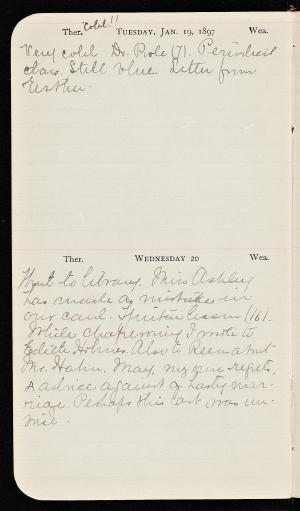 Ther. Cold!! TUESDAY, JAN. 19, 1897 Wea.
Very cold. Dr. Role (7). Periodical
class. Still blue. Letter from
Esther.
Ther. WEDNESDAY 20 Wea.
Went to library. Miss Ashley
has made a mistake in
our card. Spirits lesson (16).
While chaperoning I wrote to
Edith Holmes. Also to
Mr. Hahn, May, my own regrets,
& advice against a hasty mar-
riage. Perhaps this last was un-
wise.